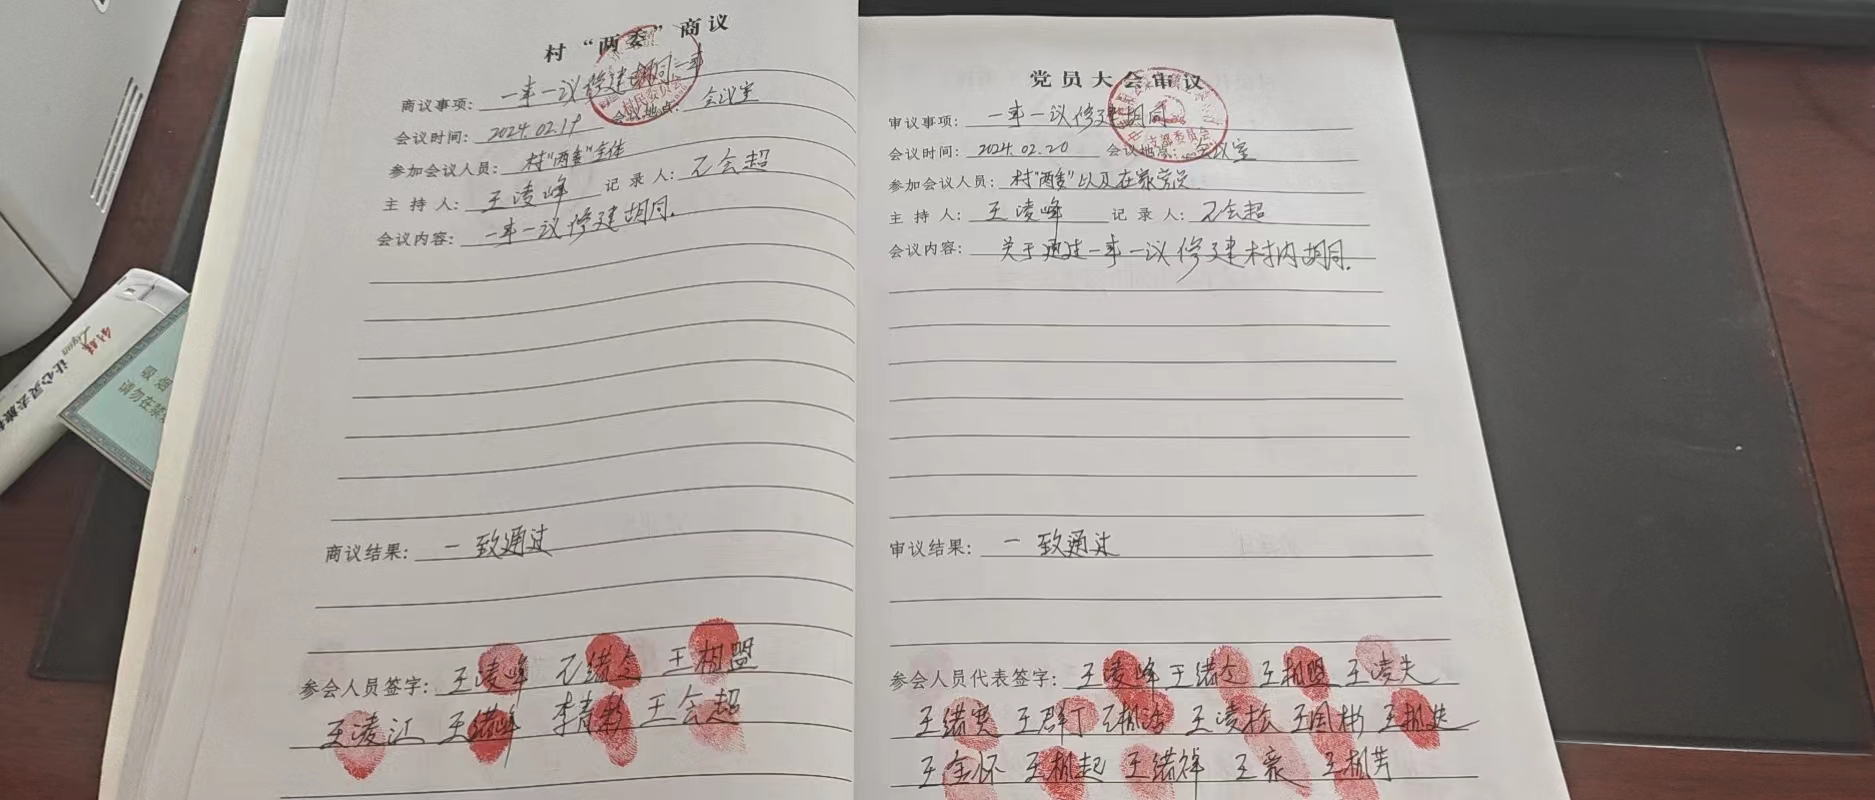 村“两委”商议
商议事项：一事一议修建胡同一事
会议时间：2024.02.19 会议地点：会议室
参加会议人员：村“两委”全体
主持人：王凌峰 记录人：王会超
会议内容：一事一议修建胡同.
商议结果：一致通过
参会人员签字：王凌峰 王绪 王相盟
王凌江 王绪峰 李青 王会超
党员大会审议
审议事项：一事一议修建胡同
会议时间：2024.02.20 会议地点：会议室
参加会议人员：村“两委”以及在家党员
主持人：王凌峰 记录人：王会超
会议内容：关于通过一事一议修建村内胡同.
审议结果：一致通过
参会人员代表签字：王凌峰 王绪 王相盟 王凌
王绪 王群 王凌松 王国彬
王金怀 王相起 王绪 王豪
村民委员会
支部委员会
让心灵去旅
吸烟
请勿在禁